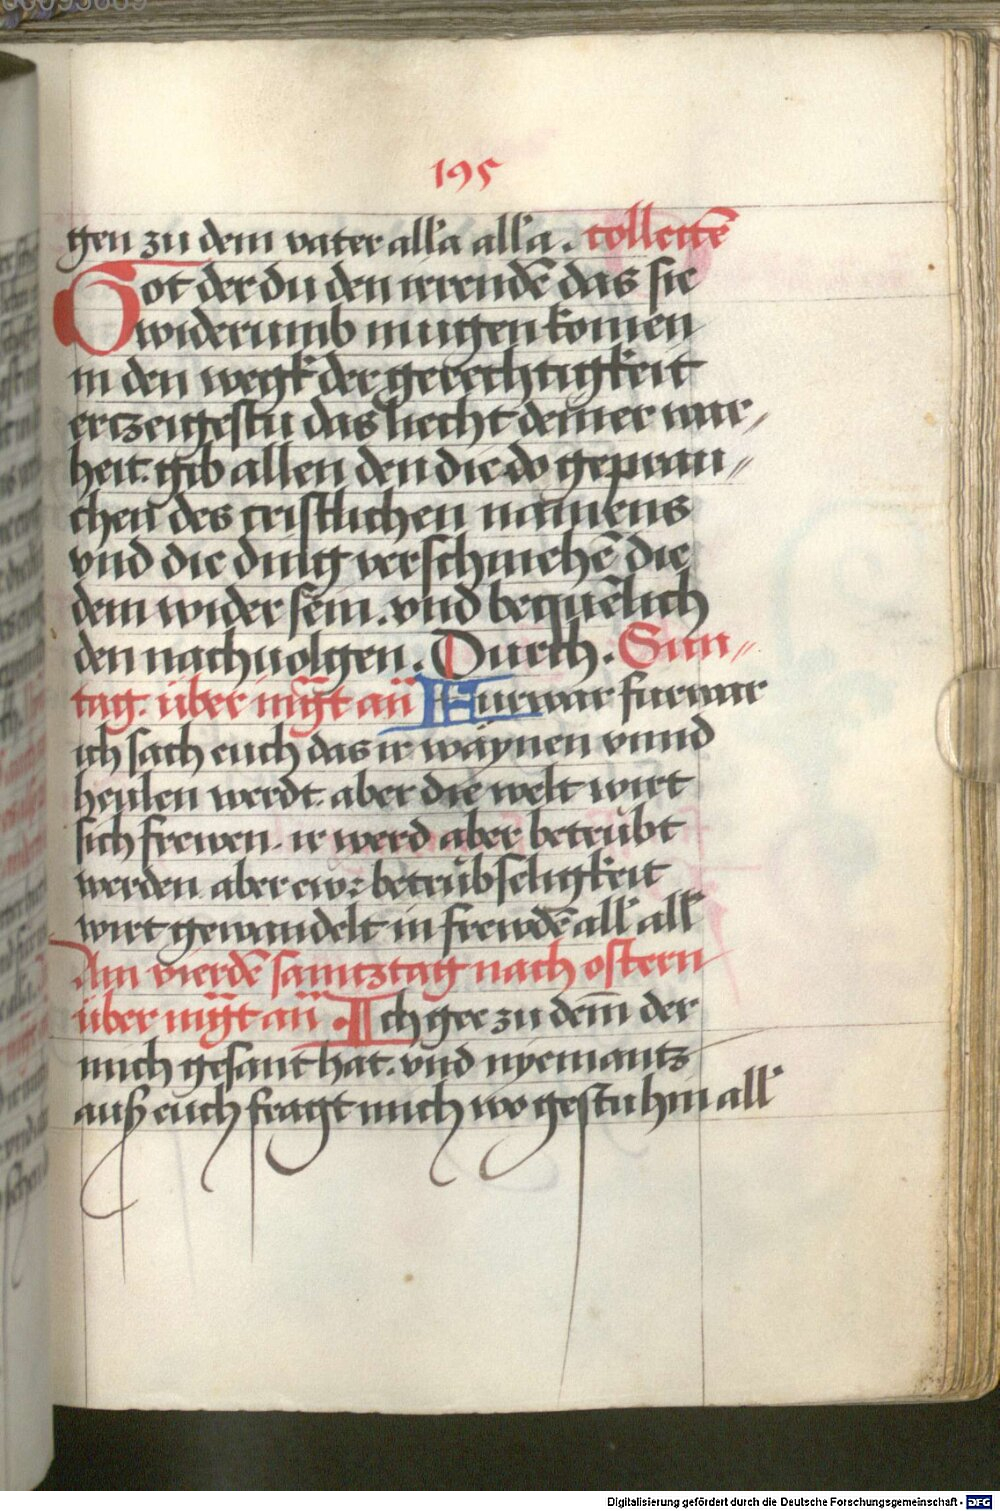 195
gen zu dem vater all'a all'a . collectē
Got der du den irrendē das sie
widerumb mugen komen
in den wegk der gerechtigkeit
ertzeigestu das liecht deiner war„
heit. gib allen den die do geprau„
chen des cristlichen namens
vnd die ding verschmehē die
dem wider sein. vnd bequēlich
den nachuolgen. Durch. Sun„
tag. über mg̅t an̄ Furwar furwar
ich sach euch das ir waynen vnnd
heulen werdt. aber die welt wirt
sich frewen. ir werd aber betrübt
werden aber ewr betrübseligkeit
wirt gewandelt in frewdē all' all'
Am vierdē samtztag nach ostern
über mg̅t an̄ . Ich gee zu dem̄ der
mich gesant hat. vnd nyemantz
auß euch fragt mich wo gestu hin all'
Digitalisierung gefördert durch die Deutsche Forschungsgemeinschaft - DFG